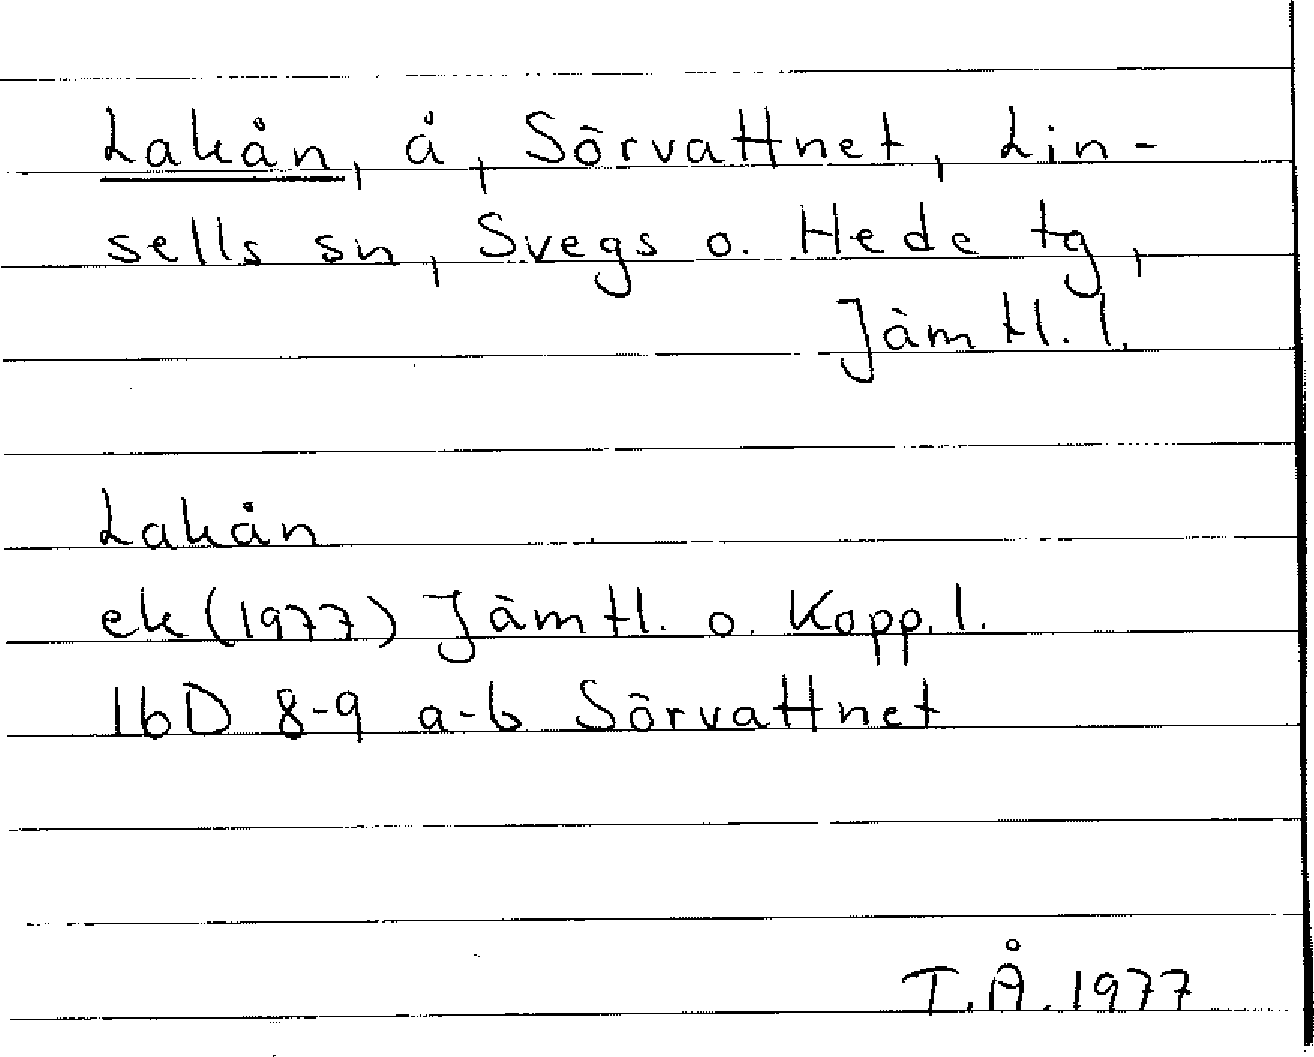 Lakån, å, Sörvattnet, Lin-
sells sn, Svegs o. Hede tg,
Jämtl. l.
Lakån
ek (1977) Jämtl. o. Kopp. l.
16D 8-9 a-b Sörvattnet
T.Å. 1977